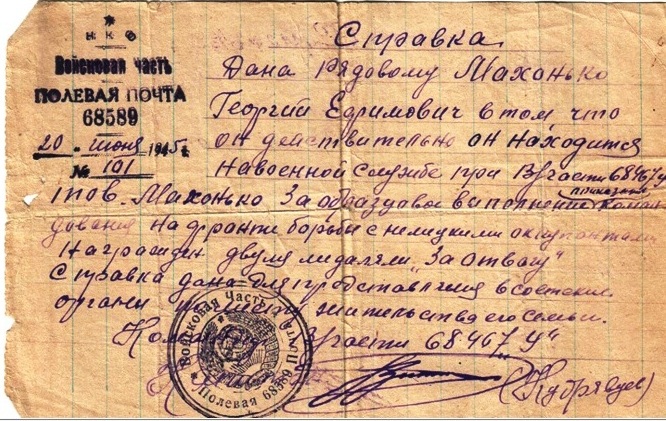 НКО
Войсковая часть
ПОЛЕВАЯ ПОЧТА
68589
20 июня 1945 г.
№ 101
Справка
Дана Рядовому Махонько
Георгий Ефримович в том что
он действительно он находится
на военной службе при В/части 68467 У
тов. Махонько За образцовое выполнение приказов коман
дования на фронти борьбы с немицкими окупонтами
награжден двумя медалями "За отвагу"
Справка дана для представления в советские
органы жительства его семьи.
В/части 68467 "У"
(Кудрявцев)
Войсковая Часть
Полевая 68589